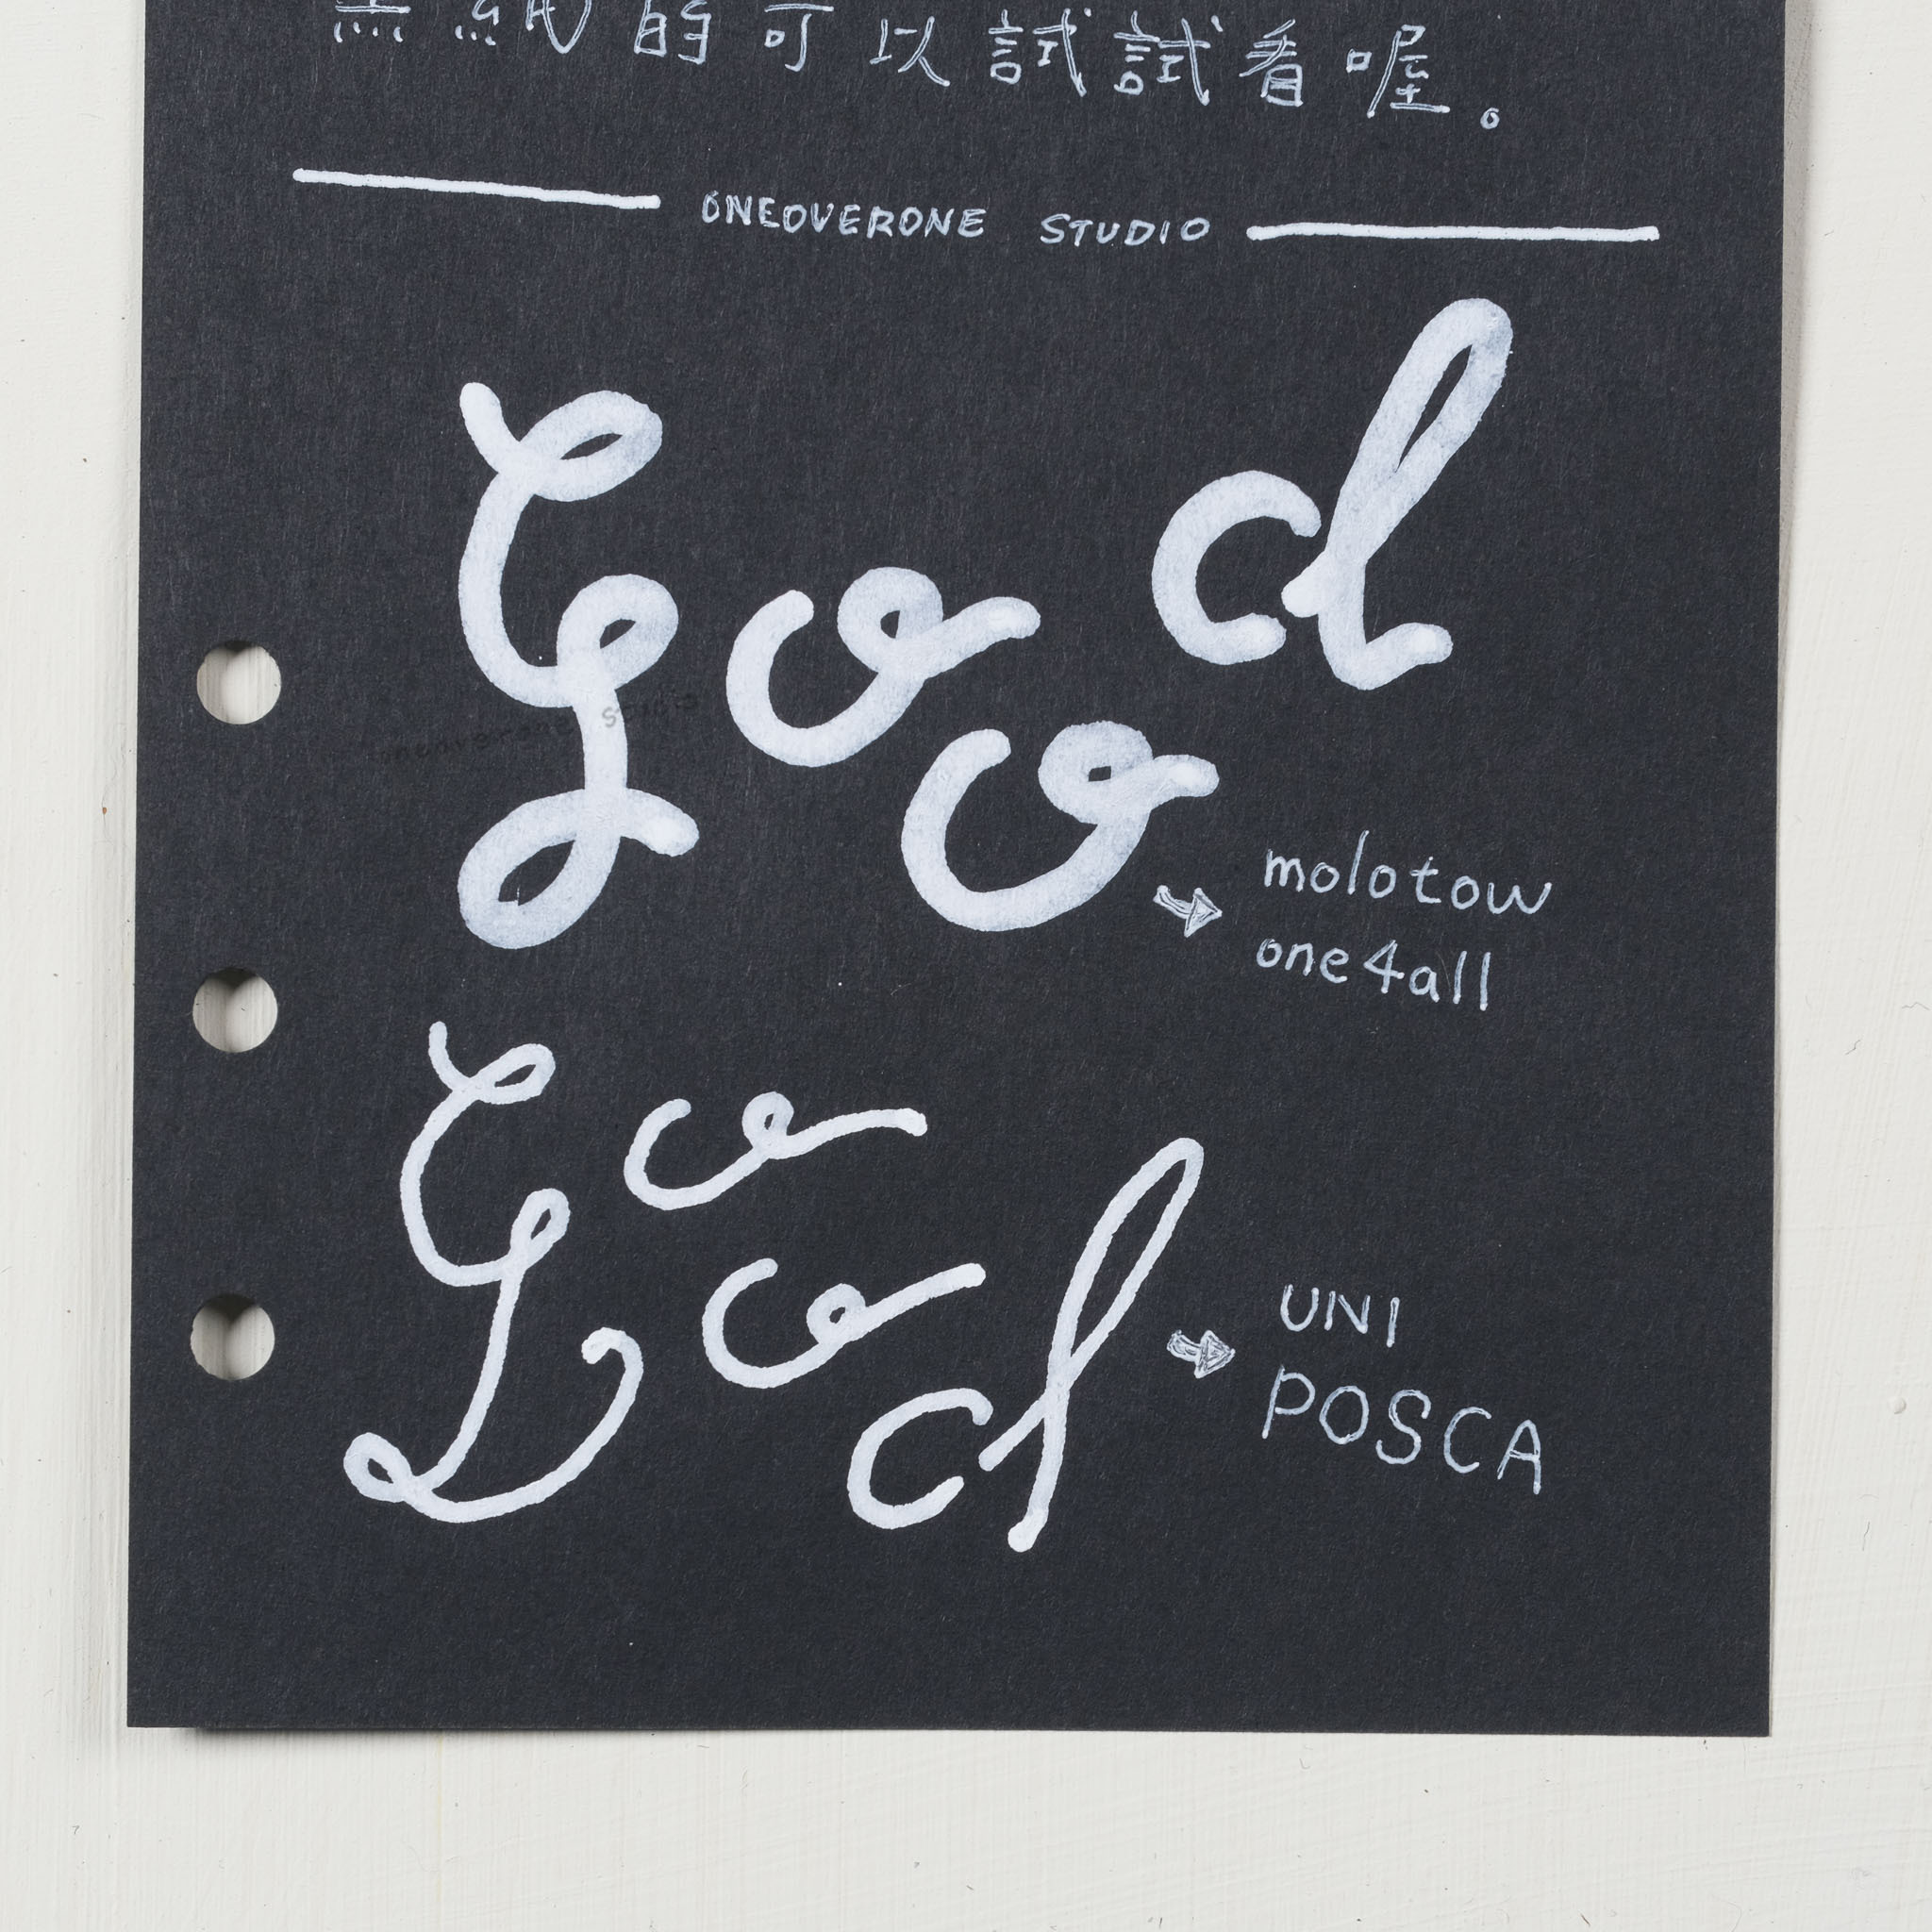 黑紙的可以試試看喔。
ONEOVERONE STUDIO
Good
molotow
one4all
oneoverone studio
Good
UNI
POSCA